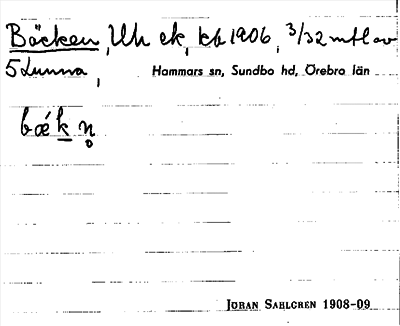 Bäcken, Uh ek, kb 1906, 3/32 mtl av
5 Lunna, Hammars sn, Sundbo hd, Örebro län
bǽk n̥
JÖRAN SAHLGREN 1908-09